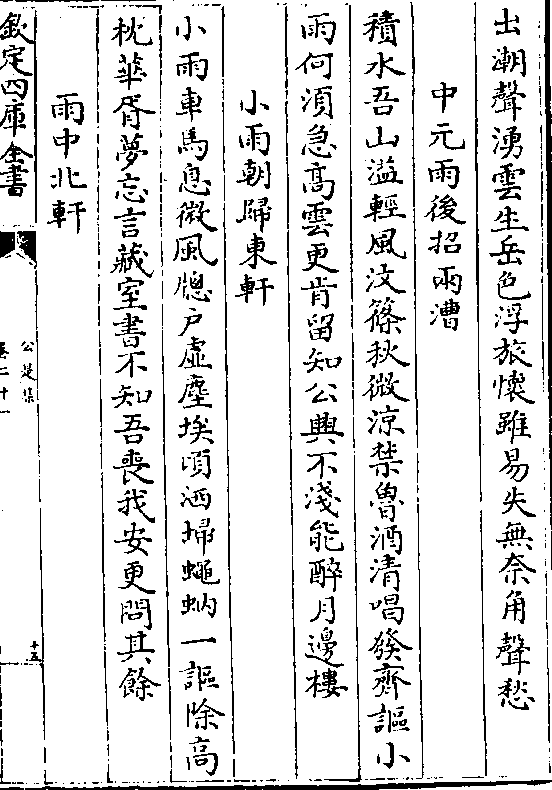 出潮聲湧雲生岳色浮旅懷雖易失無奈角聲愁
中元雨後招兩漕
積水吾山溢輕風汶篠秋微涼禁魯酒清唱發齊謳小
雨何須急髙雲更肯留知公興不淺能醉月邊樓
小雨朝歸東軒
小雨車馬息微風牕户虚塵埃頃洒埽蠅蚋一謳除高
枕華胥夢忘言藏室書不知吾喪我安更問其餘
雨中北軒
欽定四庫全書
公是集
卷二十一
十五